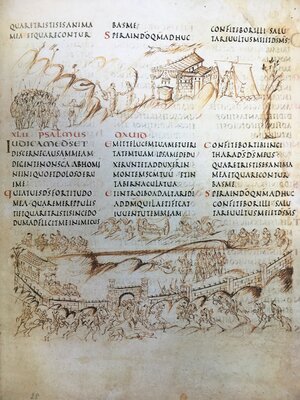 QUARETRISTISESANIMA
MEA ETQUARECONTUR
BASME
SPERAINDOQNMADHUC
CONFITEBORILLI SALU
TAREUULTUSMEIETDSMS
XLII PSALMUS DAUID
IUDICAMEDSET
DISCERNECAUSAMMEAM
DEGENTENONSCA ABHOMI
NEINIQUOETDOLOSOERU
EME
QUIATUESDSFORTITUDO
MEA QUAREMEREPPULIS
TIETQUARETRISTISINCEDO
DUMADFLIGITMEINIMICUS
EMITTELUCEMTUAMETUERI
TATEMTUAM IPSAMEDEDU
XERUNTETADDUXERIN
MONTEMSCMTUU ETIN
TABERNACULATUA
ETINTROIBOADALTAREDI
ADDMQUILAETIFICAT
IUUENTUTEMMEAM
CONFITEBORTIBIINCI
THARADSDSMEUS
QUARETRISTISESANIMA
MEAETQUARECONTUR
BASME
SPERAINDOQNMADHUC
CONFITEBORILLI SALU
TAREUULTUSMEIETDSMS